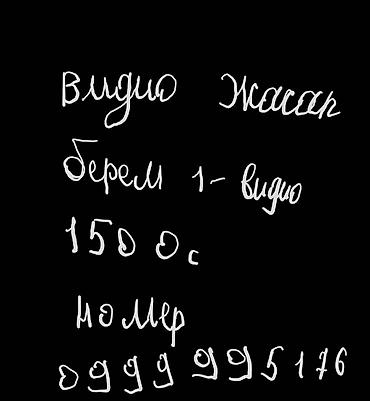 видио жасап
берем 1- видио
1500с
номер
0999 995176